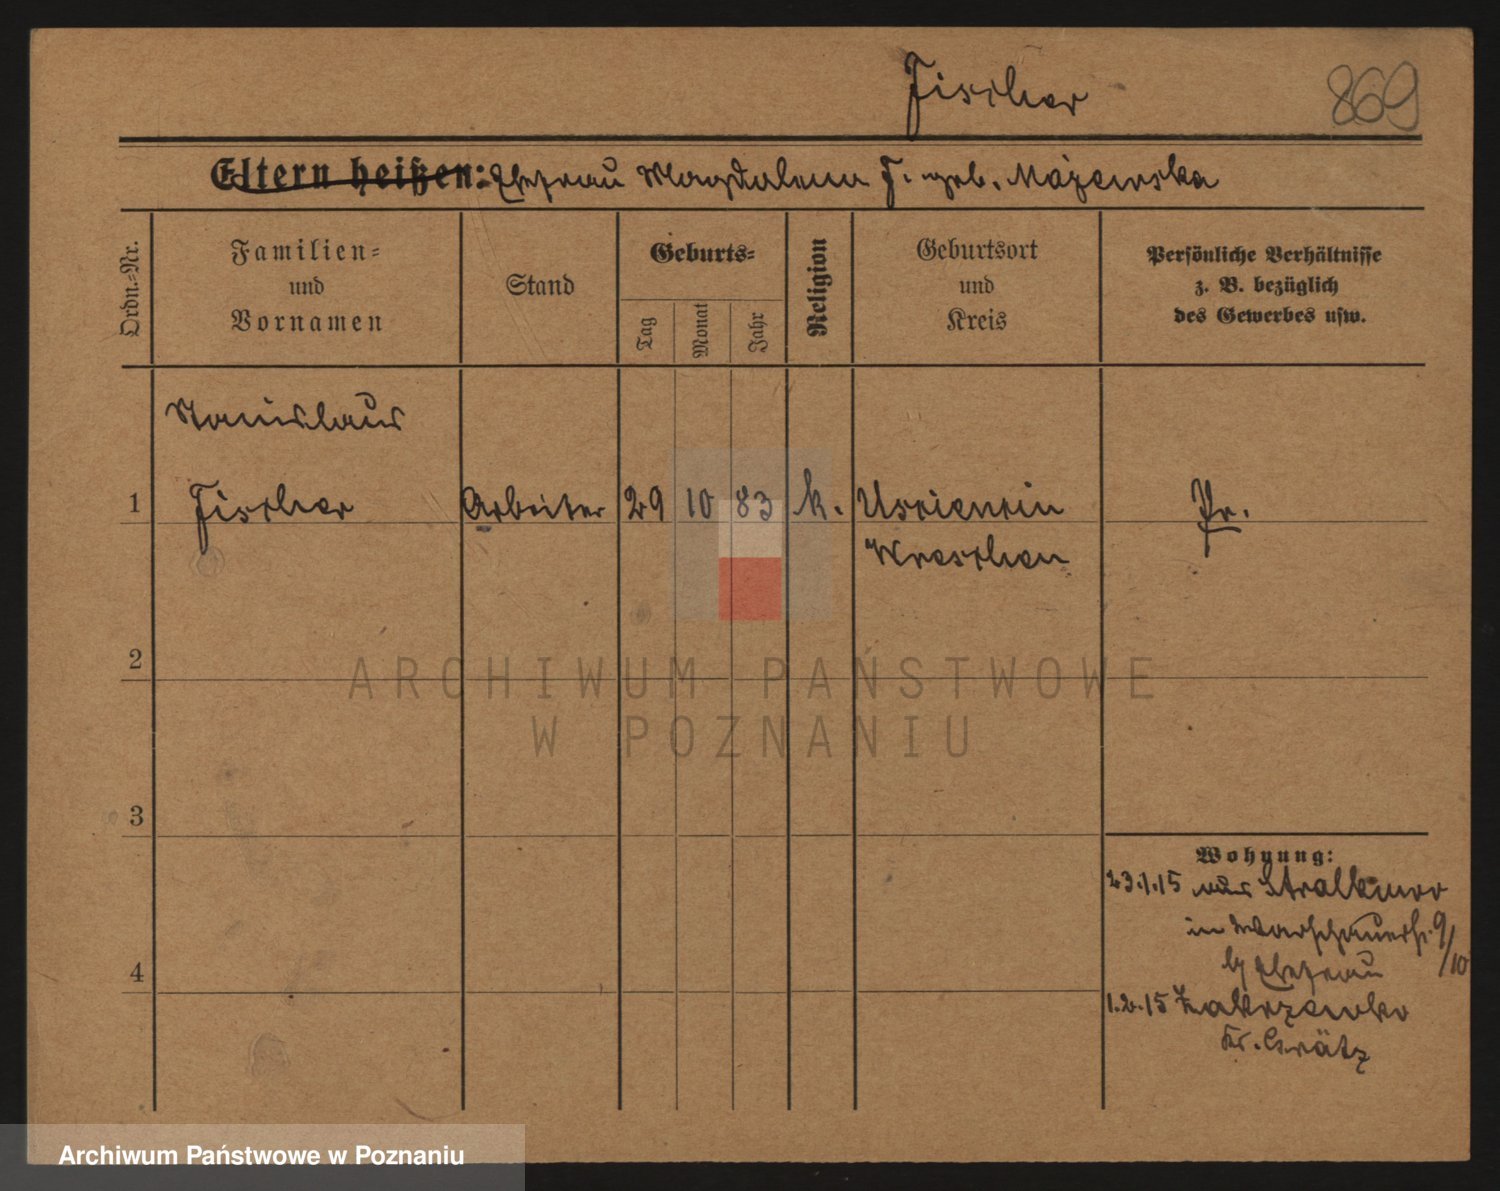 Fischer
869
Eltern heißen: Ehefrau Magdalena F. geb. Mazewska
Ordn.-Nr.
Familien-
und
Vornamen
Stand
Geburts-
Tag
Monat
Jahr
Religion
Geburtsort
und
Kreis
Persönliche Verhältnisse
z. B. bezüglich
des Gewerbes usw.
Stanislaus
1 Fischer Arbeiter 29 10 83 k. Usciencin Pr.
Wreschen
2
ARCHIWUM PAŃSTWOWE
W POZNANIU
3
Wohnung:
23.1.15 aus Stralkowo
in Warschauerstr. 9/10
b/ Ehefrau
4
1.2.15 Zakrzewko
Kr. Grätz
Archiwum Państwowe w Poznaniu